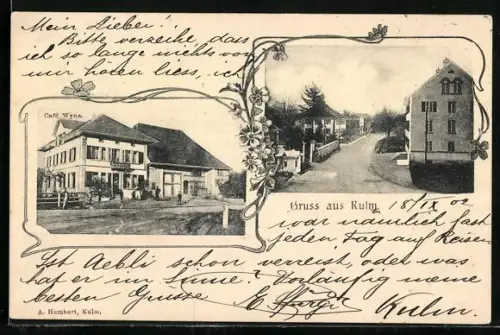 Mein Lieber!
Bitte verzeihe, das
ich so lange nichts von
mir hören liess, ich
Café Wyna.
Gruss aus Kulm
18/IX 02
war nämlich fast
jeden Tag auf Reisen
Ist Aebli schon verreist, oder was
hat er im Sinne? Vorläufig meine
besten Grüsse
Kulm.
A. Humbert, Kulm.